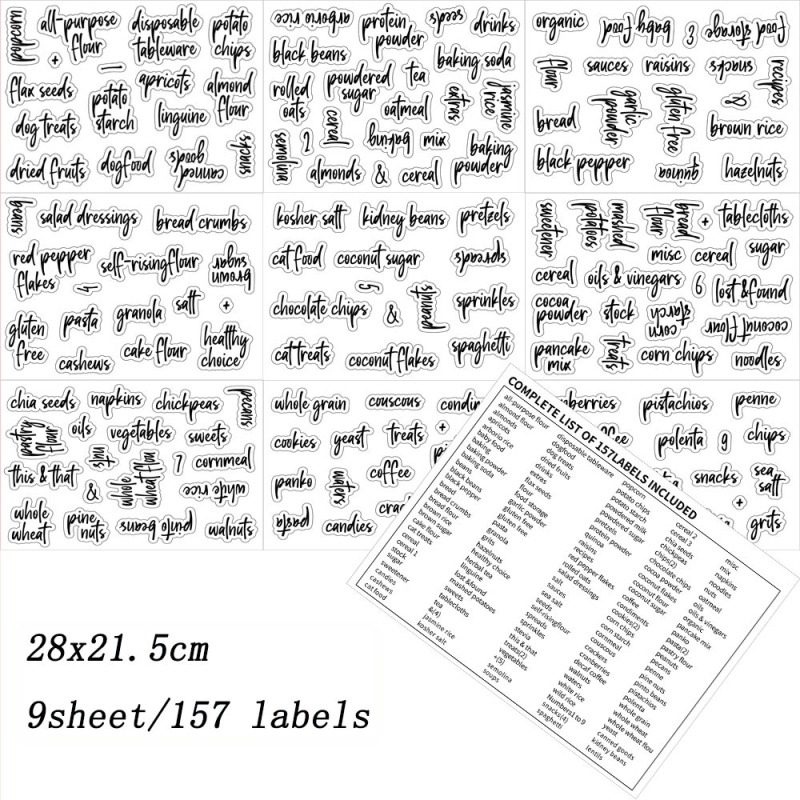 popcorn
all-purpose flour
disposable tableware
potato chips
+
1
flax seeds
potato starch
apricots
almond flour
dog treats
linguine
dried fruits
dogfood
canned goods
snacks
arborio rice
protein powder
seeds
drinks
black beans
baking soda
rolled oats
powdered sugar
tea
extras
jasmine rice
oatmeal
semolina
2
cereal
baking
mix
baking powder
almonds
&
cereal
organic
baby food
3
food storage
flour
sauces
raisins
snacks
recipes
garlic powder
gluten free
&
bread
brown rice
black pepper
quinoa
hazelnuts
beans
salad dressings
bread crumbs
red pepper flakes
self-risingflour
brown sugar
4
gluten free
pasta
granola
salt
+
cashews
cake flour
healthy choice
kosher salt
kidney beans
pretzels
cat food
coconut sugar
spreads
5
chocolate chips
&
peanuts
sprinkles
cat treats
coconut flakes
spaghetti
sweetener
mashed potatoes
bread flour
+
tablecloths
misc
cereal
sugar
cereal
oils & vinegars
6
lost &found
cocoa powder
stock
corn starch
coconut flour
pancake mix
treats
corn chips
noodles
chia seeds
napkins
chickpeas
pecans
pastry flour
oils
vegetables
sweets
this & that
nuts
7
cornmeal
&
whole wheat flou
white rice
whole wheat
pine nuts
pinto beans
walnuts
whole grain
couscous
cookies
yeast
treats
+
panko
waters
coffee
pasta
candies
pistachios
penne
polenta
9
chips
snacks
sea salt
+
grits
COMPLETE LIST OF 157LABELS INCLUDED
all-purpose flour
almond flour
apricots
arborio rice
baby food
baking
baking powder
baking soda
beans
black beans
black pepper
bread
bread crumbs
bread flour
brown rice
brown sugar
cake flour
cat treats
cereal 1
stock
sugar
sweetener
candies
cashews
cat food
disposable tableware
dogfood
dog treats
dried fruits
drinks
extras
flax seeds
flour
food storage
garlic powder
gluten free
gluten free
pasta
granola
grits
hazelnuts
healthy choice
herbal tea
linguine
lost &found
mashed potatoes
sweets
tablecloths
tea
&(4)
jasmine rice
kosher salt
popcorn
potato chips
potato starch
powdered milk
powdered sugar
pretzels
protein powder
quinoa
raisins
recipes
red pepper flakes
rolled oats
salad dressings
salt
sauces
sea salt
seeds
self-risingflour
spreads
sprinkles
stevia
this & that
treats(2)
vegetables
+(5)
semolina
soups
cereal 2
cereal 3
chia seeds
chickpeas
chips(2)
chocolate chips
cocoa powder
coconut flakes
coconut flour
coconut sugar
coffee
condiments
cookies(2)
corn chips
corn starch
cornmeal
couscous
crackers
cranberries
decaf coffee
walnuts
waters
white rice
wild rice
Numbers1 to 9
snacks(4)
spaghetti
misc
mix
napkins
noodles
nuts
oatmeal
oils
oils & vinegars
organic
pancake mix
panko
pasta(2)
pastry flour
peanuts
pecans
penne
pine nuts
pinto beans
pistachios
polenta
whole grain
whole wheat
whole wheat flou
yeast
canned goods
kidney beans
lentils
28x21.5cm
9sheet/157 labels